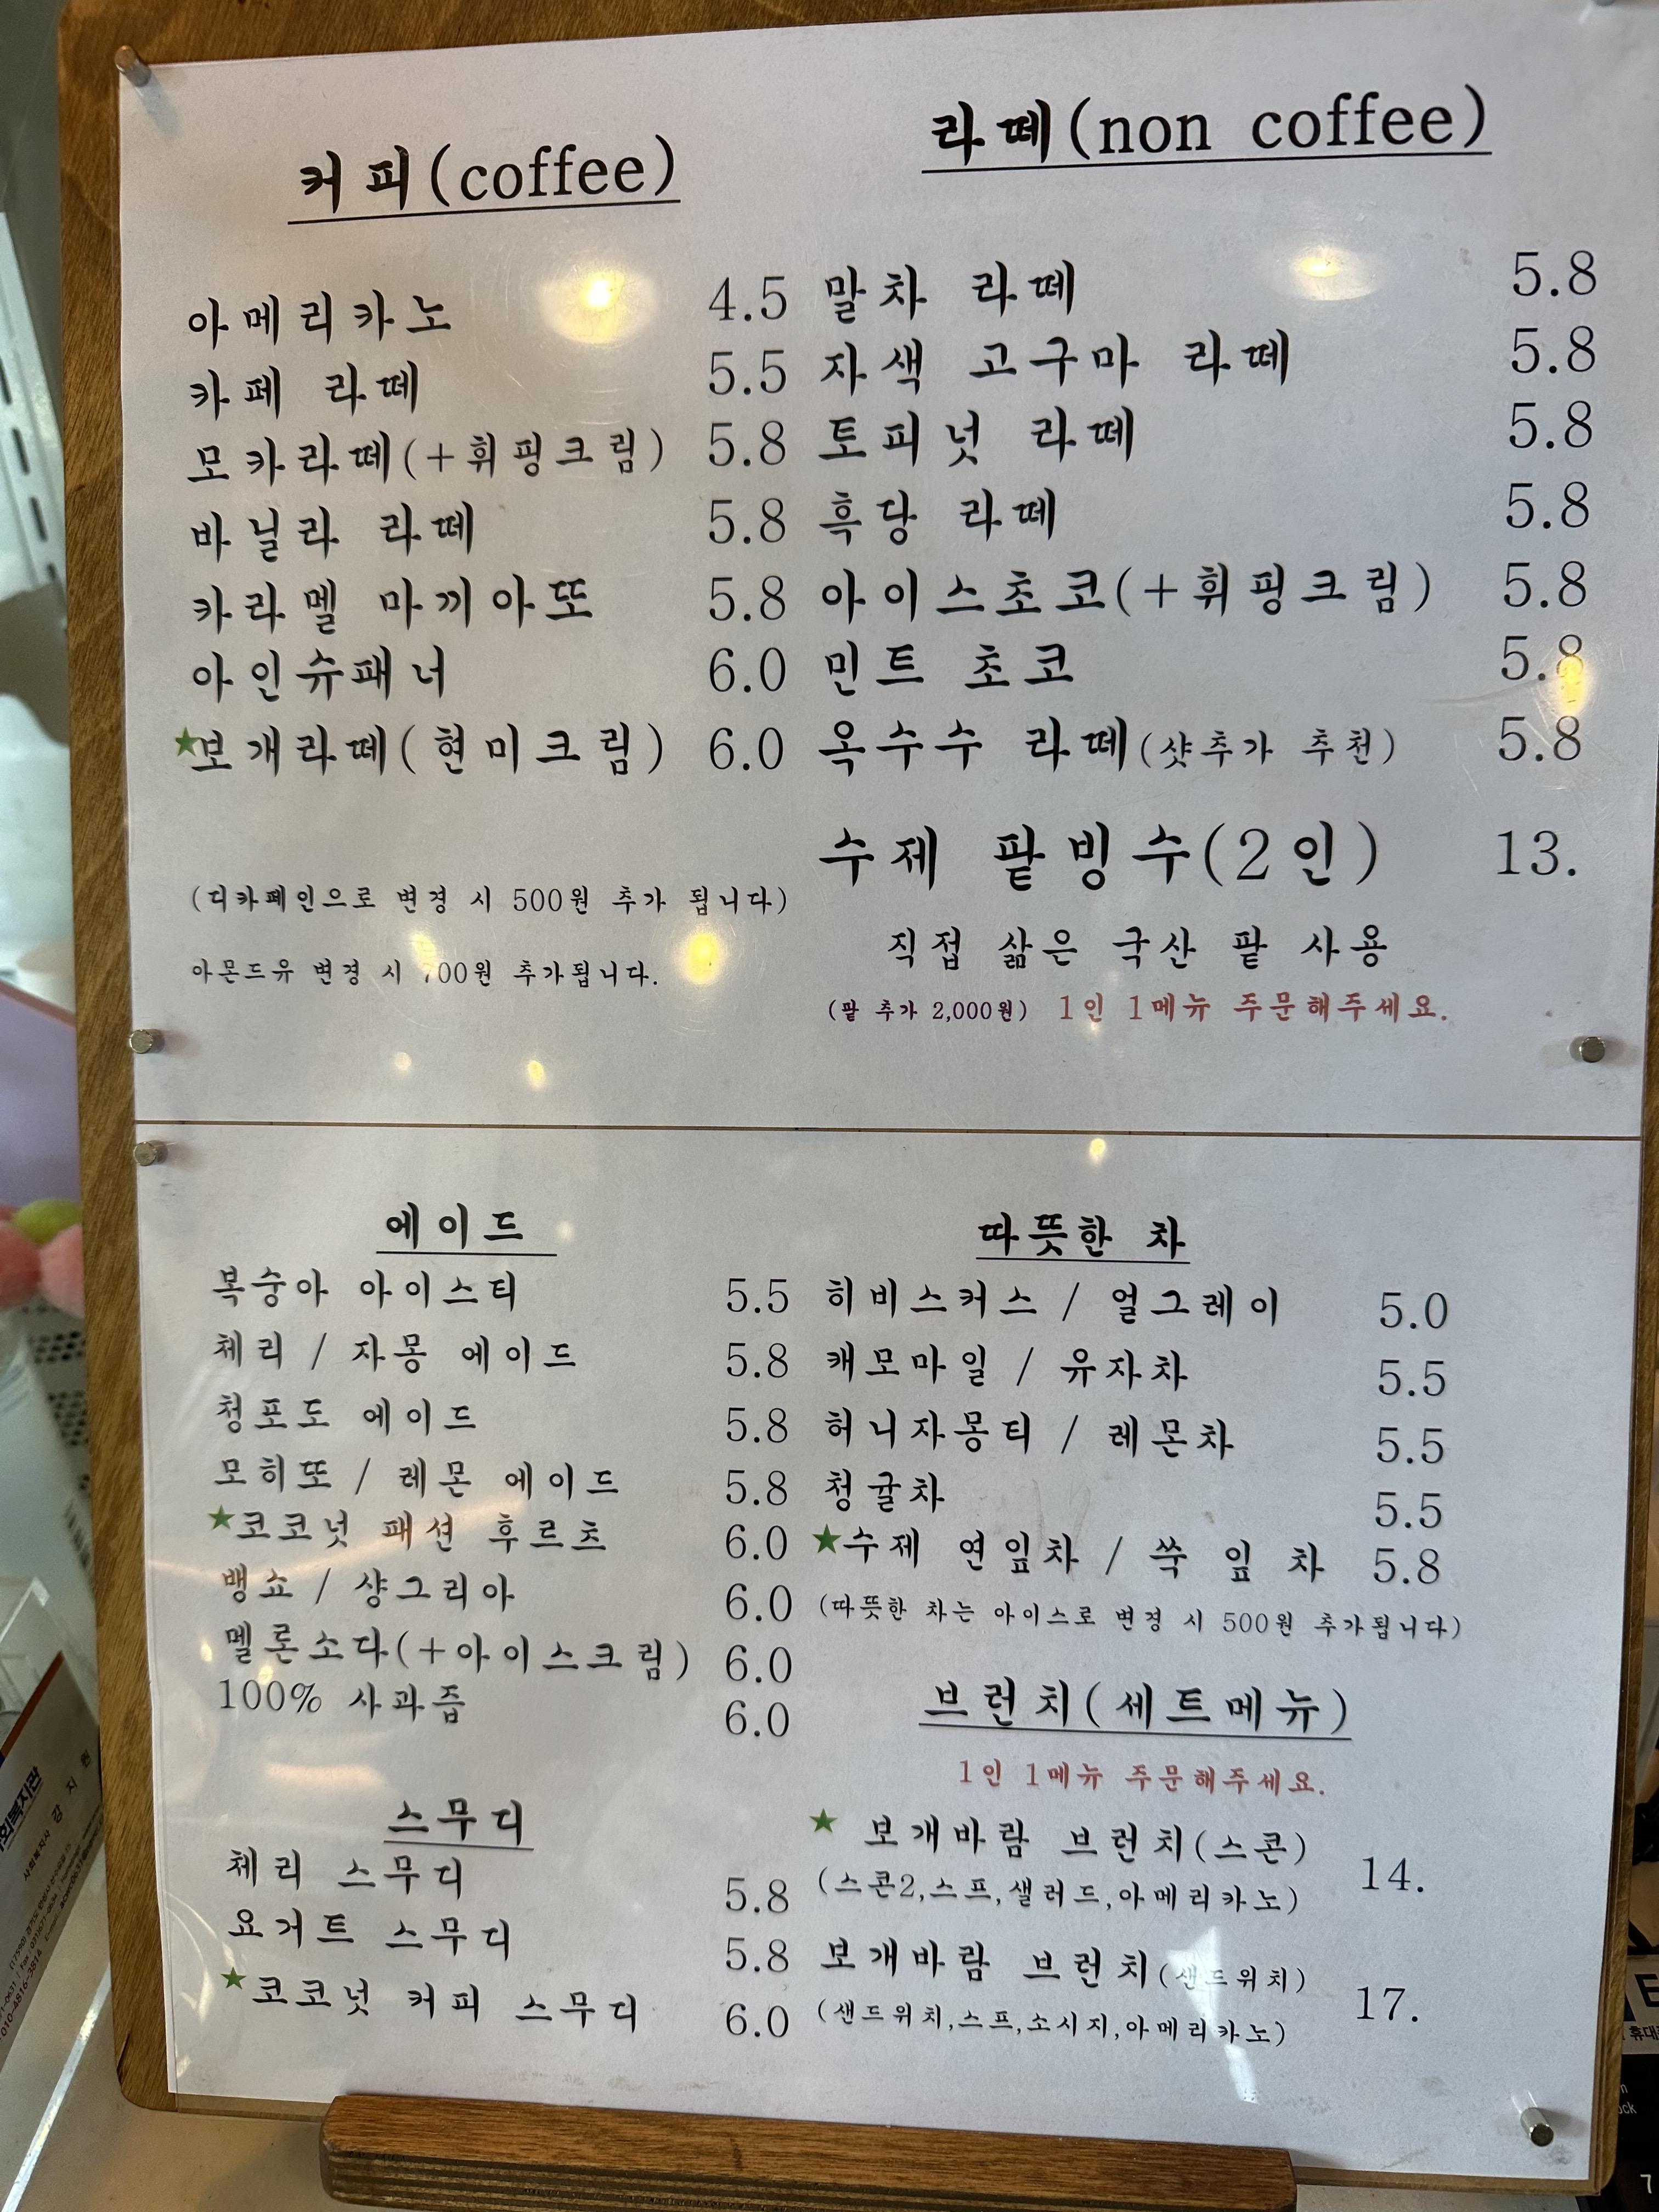 커피(coffee)
아메리카노 4.5
카페 라떼 5.5
모카라떼(+휘핑크림) 5.8
바닐라 라떼 5.8
카라멜 마끼아또 5.8
아인슈패너 6.0
★보개라떼(현미크림) 6.0
(디카페인으로 변경 시 500원 추가 됩니다)
아몬드유 변경 시 700원 추가됩니다.
라떼(non coffee)
말차 라떼 5.8
자색 고구마 라떼 5.8
토피넛 라떼 5.8
흑당 라떼 5.8
아이스초코(+휘핑크림) 5.8
민트 초코 5.8
옥수수 라떼(샷추가 추천) 5.8
수제 팥빙수(2인) 13.
직접 삶은 국산 팥 사용
(팥 추가 2,000원) 1인 1메뉴 주문해주세요.
에이드
복숭아 아이스티 5.5
체리 / 자몽 에이드 5.8
청포도 에이드 5.8
모히또 / 레몬 에이드 5.8
★코코넛 패션 후르츠 6.0
뱅쇼 / 샹그리아 6.0
멜론소다(+아이스크림) 6.0
100% 사과즙 6.0
스무디
체리 스무디 5.8
요거트 스무디 5.8
★코코넛 커피 스무디 6.0
따뜻한 차
히비스커스 / 얼그레이 5.0
캐모마일 / 유자차 5.5
허니자몽티 / 레몬차 5.5
청귤차 5.5
★수제 연잎차 / 쑥 잎 차 5.8
(따뜻한 차는 아이스로 변경 시 500원 추가됩니다)
브런치(세트메뉴)
1인 1메뉴 주문해주세요.
★ 보개바람 브런치(스콘) 14.
(스콘2,스프,샐러드,아메리카노)
보개바람 브런치(샌드위치) 17.
(샌드위치,스프,소시지,아메리카노)